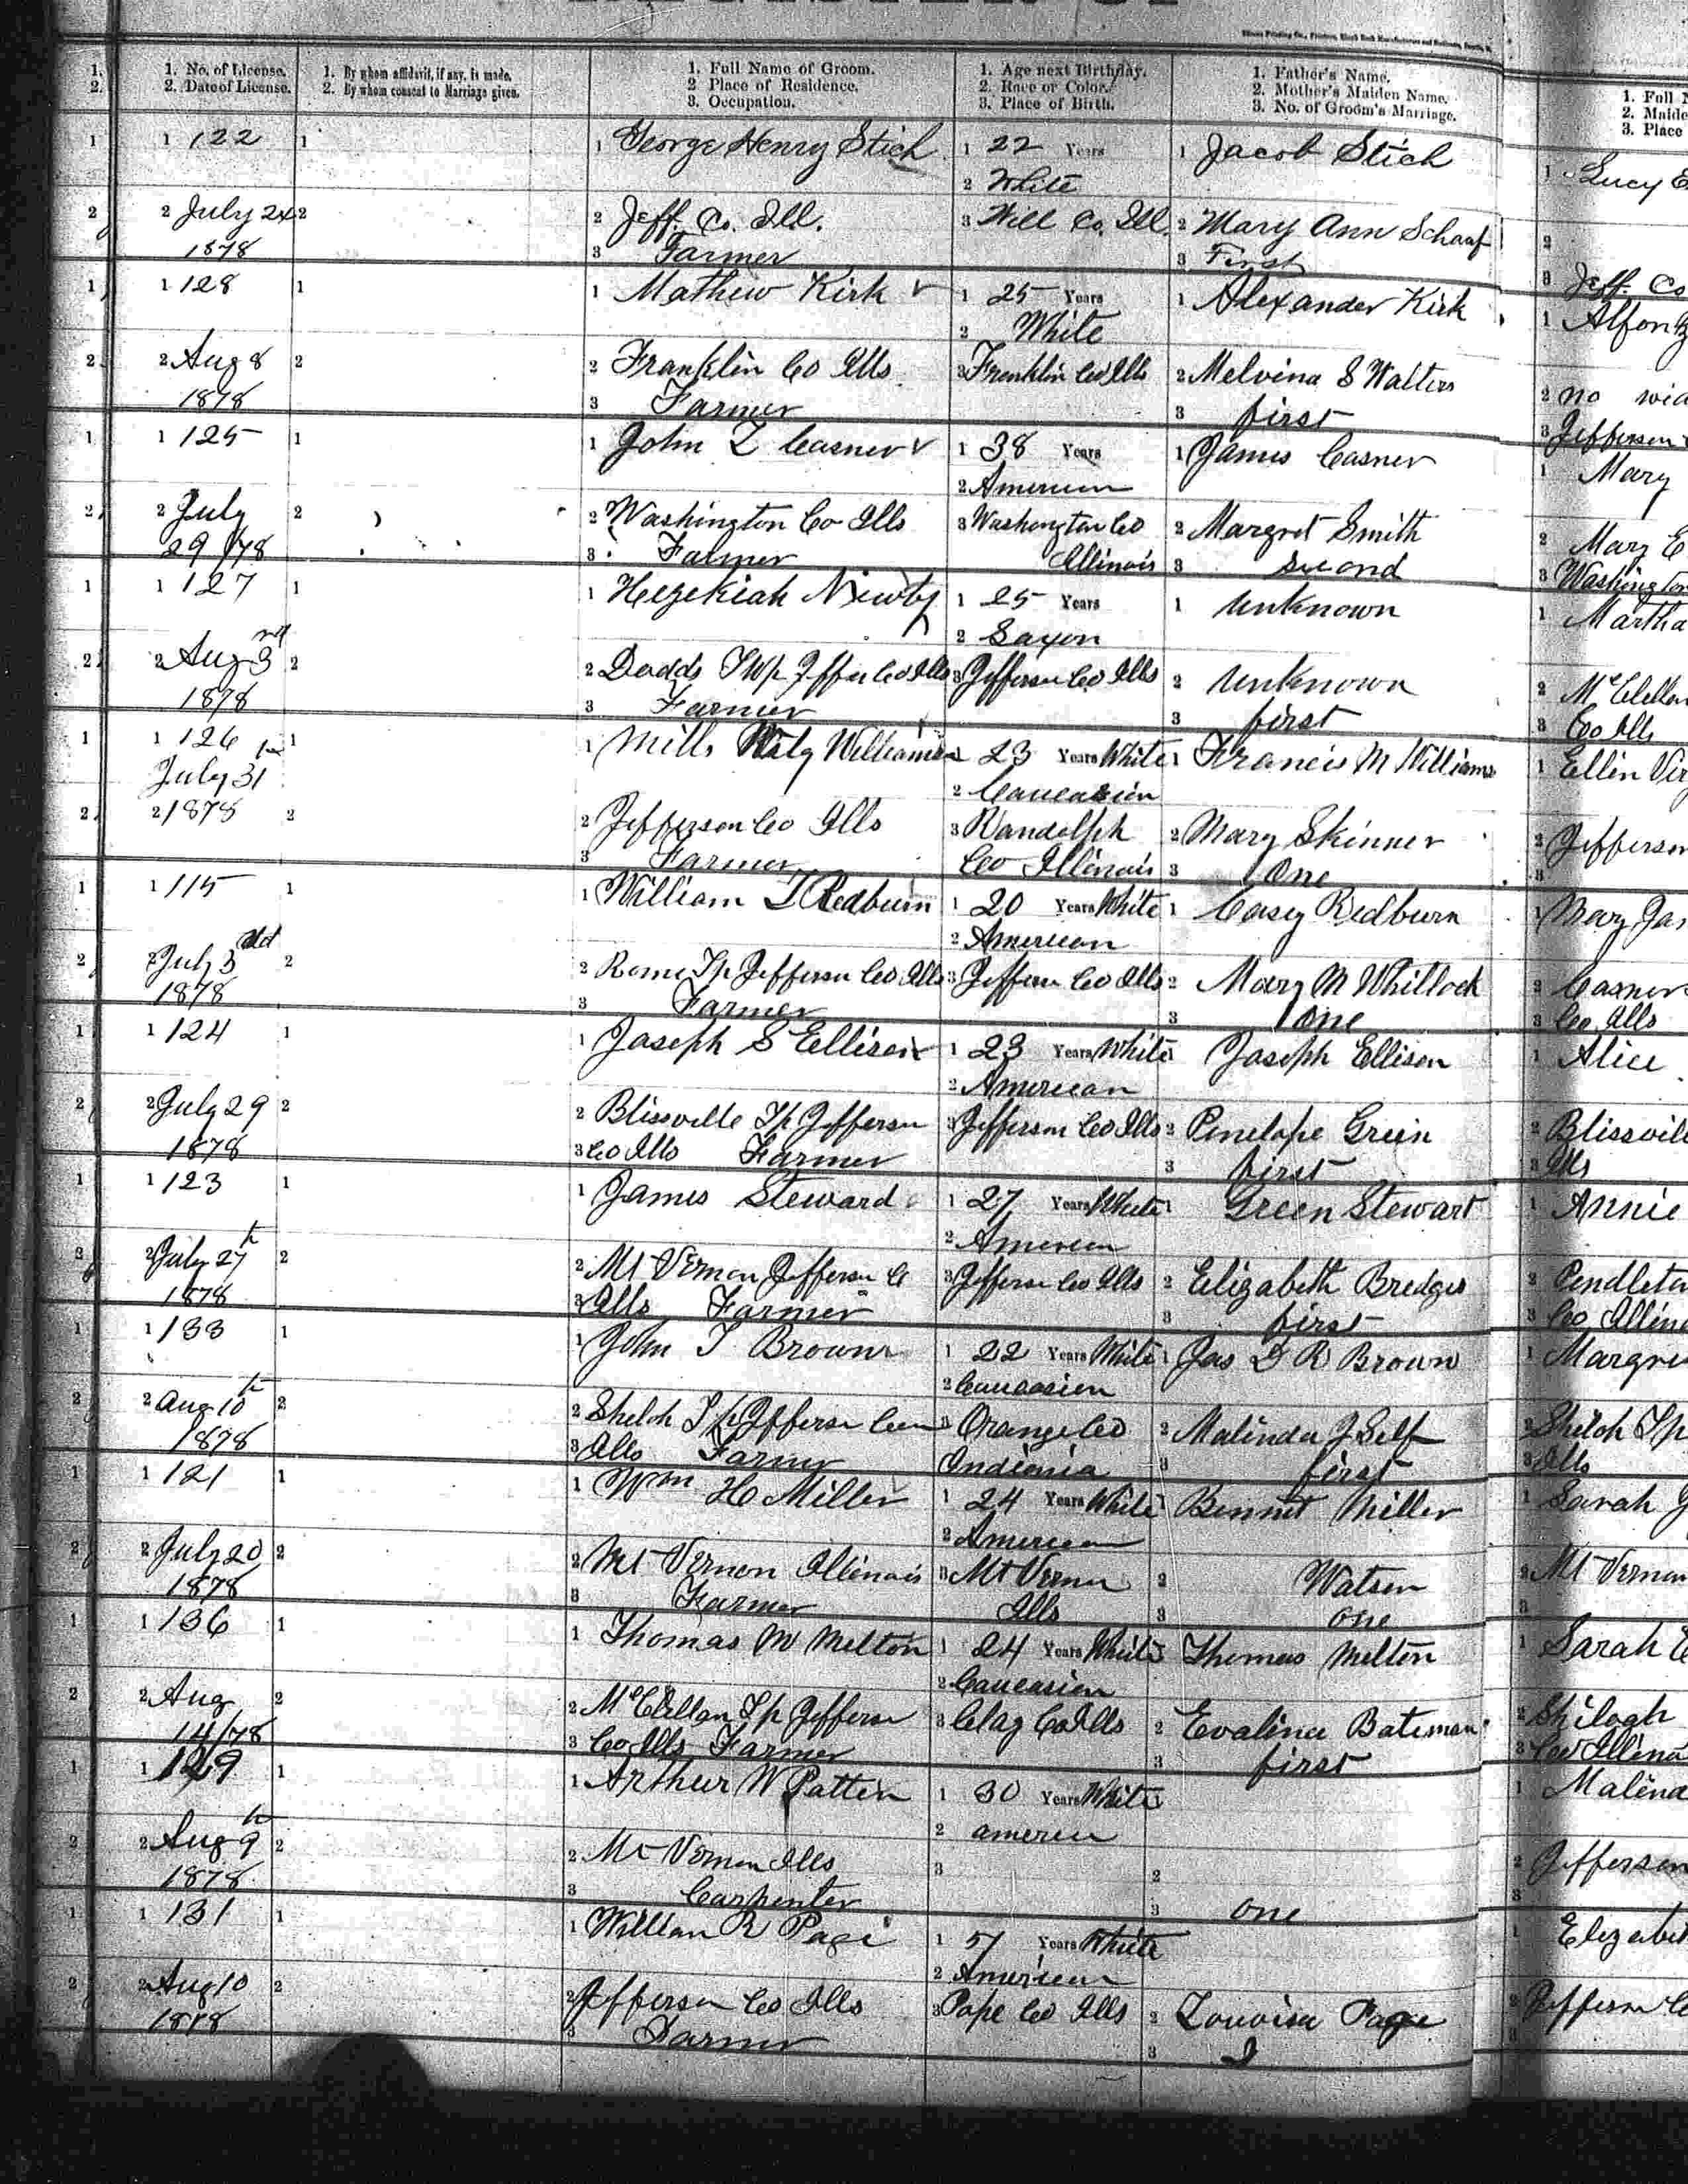 1. No. of License.
2. Date of License.
1. By whom affidavit, if any, is made.
2. By whom consent to Marriage given.
1. Full Name of Groom.
2 Place of Residence.
3. Occupation.
1. Age next Birthday.
2. Race or Color.
3. Place of Birth.
1. Father's Name.
2. Mother's Maiden Name.
3. No. of Groom's Marriage.
1. Full
2. Maide
3. Place
1 1 122 1 1 George Henry Stich 1 22 Years 1 Jacob Stich 1 Lucy E
2 White
2 2 July 24 2 2 Jeff. Co. Ill. 3 Will Co. Ill. 2 Mary Ann Schaaf 2
1878 3 Farmer 3 First 3 Jeff. Co
1 1 128 1 1 Mathew Kirk 1 25 Years 1 Alexander Kirk 1 Alfon
2 White
2 2 Aug 8 2 2 Franklin Co Ills 3 Franklin Co Ills 2 Melvina S Walters 2 no
1878 3 Farmer 3 first 3 Jefferson
1 1 125 1 1 John Casner 1 38 Years 1 James Casner 1 Mary
2 American
2 2 July 2 2 Washington Co Ills 3 Washington Co 2 Margret Smith 2 Mary E
29/78 3 Farmer Illinois 3 second 3 Washington
1 1 127 1 1 Hezekiah Newby 1 25 Years 1 unknown 1 Martha
2 Saxon
2 2 Aug 3 2 2 Dodds Twp Jeffer Co Ills 3 Jefferson Co Ills 2 unknown 2 McClellan
1878 3 Farmer 3 first 3 Co Ills
1 1 126 1 1 Mills Williams 1 23 Years White 1 Francis M Williams 1 Ellin Vir
July 31 2 Caucasian
2 2 1878 2 2 Jefferson Co Ills 3 Randolph 2 Mary Skinner 2 Jefferson
3 Farmer Co Illinois 3 One 3
1 1 115 1 1 William T Redburn 1 20 Years White 1 Casey Redburn 1 Mary Jan
2 American
2 2 July 3 2 2 Rome Tp Jefferson Co Ills 3 Jefferson Co Ills 2 Mary M Whitlock 2 Casner
1878 3 Farmer 3 One 3 Co Ills
1 1 124 1 1 Joseph S Ellison 1 23 Years White 1 Joseph Ellison 1 Alice
2 American
2 2 July 29 2 2 Blissville Tp Jefferson 3 Jefferson Co Ills 2 Penelope Green 2 Blissvill
1878 3 Co Ills Farmer 3 first 3 Ills
1 1 123 1 1 James Steward 1 27 Years White 1 Green Stewart 1 Annie
2 American
2 2 July 27 2 2 Mt Vernon Jefferson C 3 Jefferson Co Ills 2 Elizabeth Bridges 2 Pendleton
1878 3 Ills Farmer 3 first 3 Co Illino
1 1 133 1 1 John T Brown 1 22 Years White 1 Jas D R Brown 1 Margre
2 Caucasian
2 2 Aug 10 2 2 Shiloh Tp Jefferson Coun 3 Orange Co 2 Malinda J Self 2 Shiloh Tp
1878 3 Ills Farmer Indiania 3 first 3 Ills
1 1 121 1 1 Wm H Miller 1 24 Years White 1 Bennit Miller 1 Sarah J
2 American
2 2 July 20 2 2 Mt Vernon Illinois 3 Mt Vernon 2 Watson 2 Mt Vernon
1878 3 Farmer Ills 3 one 3
1 1 136 1 1 Thomas M Melton 1 24 Years White 1 Thomas Melton 1 Sarah E
2 Caucasian
2 2 Aug 2 2 McClellan Tp Jefferson 3 Clay Co Ills 2 Evalina Bateman 2 Shilogh
14/78 3 Co Ills Farmer 3 first 3 Co Illino
1 1 129 1 1 Arthur W Patten 1 30 Years White 1 1 Malind
2 American
2 2 Aug 9 2 2 Mt Vernon Ills 3 2 2 Jefferson
1878 3 Carpenter 3 one 3
1 1 131 1 1 William R Page 1 51 Years White 1 Elizabet
2 American
2 2 Aug 10 2 2 Jefferson Co Ills 3 Pope Co Ills 2 Louvisa Page 2 Jefferson C
1878 3 Farmer 3 3